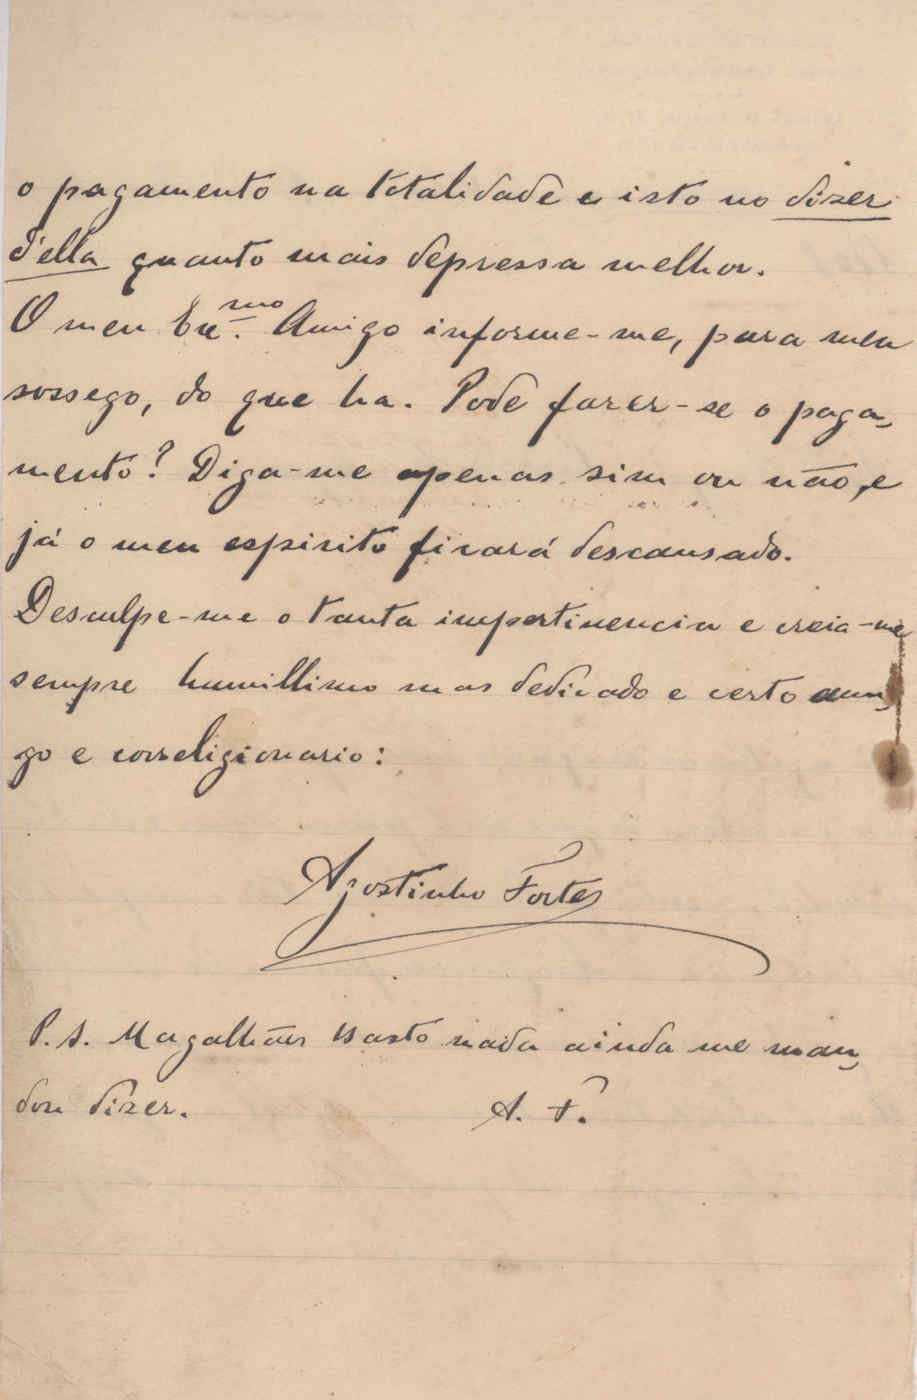 o pagamento na totalidade e isto no dizer
d'ella quanto mais depressa melhor.
O meu Ex.mo Amigo informe-me, para meu
sossego, do que ha. Pode fazer-se o paga-
mento? Diga-me apenas sim ou não, e
já o meu espirito ficará descansado.
Desculpe-me o tanta impertinencia e creia-me
sempre humillimo mas dedicado e certo ami-
go e correligionario:
Agostinho Fortes
P.S. Magalhães Basto nada ainda me man-
dou dizer. A. F.